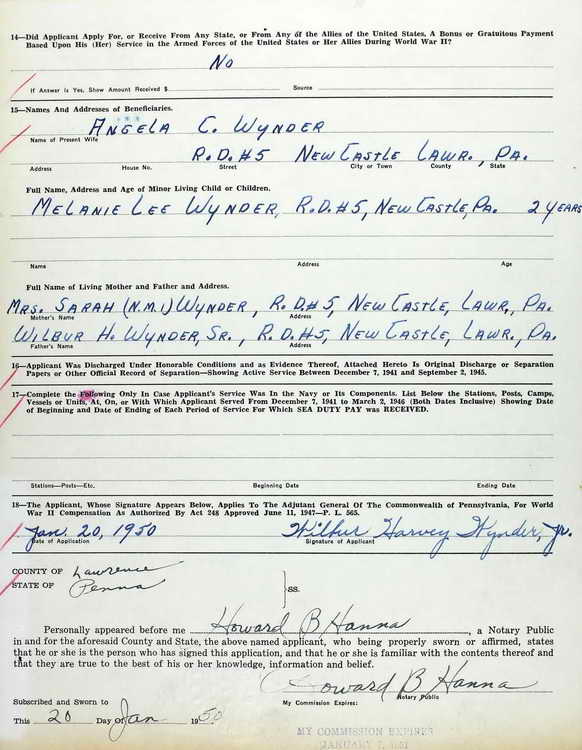 14—Did Applicant Apply For, or Receive From Any State, or From Any of the Allies of the United States, A Bonus or Gratuitous Payment
Based Upon His (Her) Service in the Armed Forces of the United States or Her Allies During World War II?
No
If Answer is Yes, Show Amount Received $ Source
15—Names And Addresses of Beneficiaries.
ANGELA C. WYNDER
Name of Present Wife
R.D.#5 NEW CASTLE LAWR., PA.
Address House No. Street City or Town County State
Full Name, Address and Age of Minor Living Child or Children.
MELANIE LEE WYNDER, R.D.#5, NEW CASTLE, PA. 2 YEARS
Name Address Age
Full Name of Living Mother and Father and Address.
MRS. SARAH (N.M.I.) WYNDER, R.D.#5, NEW CASTLE, LAWR., PA.
Mother's Name Address
WILBUR H. WYNDER, SR., R.D.#5, NEW CASTLE, LAWR., PA.
Father's Name Address
16—Applicant Was Discharged Under Honorable Conditions and as Evidence Thereof, Attached Hereto Is Original Discharge or Separation
Papers or Other Official Record of Separation—Showing Active Service Between December 7, 1941 and September 2, 1945.
17—Complete the Following Only In Case Applicant's Service Was In the Navy or Its Components. List Below the Stations, Posts, Camps,
Vessels or Units, At, On, or With Which Applicant Served From December 7, 1941 to March 2, 1946 (Both Dates Inclusive) Showing Date
of Beginning and Date of Ending of Each Period of Service For Which SEA DUTY PAY was RECEIVED.
Stations—Posts—Etc. Beginning Date Ending Date
18—The Applicant, Whose Signature Appears Below, Applies To The Adjutant General Of The Commonwealth of Pennsylvania, For World
War II Compensation As Authorized By Act 248 Approved June 11, 1947—P. L. 565.
Jan. 20, 1950 Wilbur Harvey Wynder, Jr.
Date of Application Signature of Applicant
COUNTY OF Lawrence
STATE OF Penna
}ss.
Personally appeared before me Howard B Hanna, a Notary Public
in and for the aforesaid County and State, the above named applicant, who being properly sworn or affirmed, states
that he or she is the person who has signed this application, and that he or she is familiar with the contents thereof and
that they are true to the best of his or her knowledge, information and belief.
Howard B. Hanna
Notary Public
Subscribed and Sworn to My Commission Expires:
This 20 Day of Jan 1950
MY COMMISSION EXPIRES
JANUARY 7, 1951